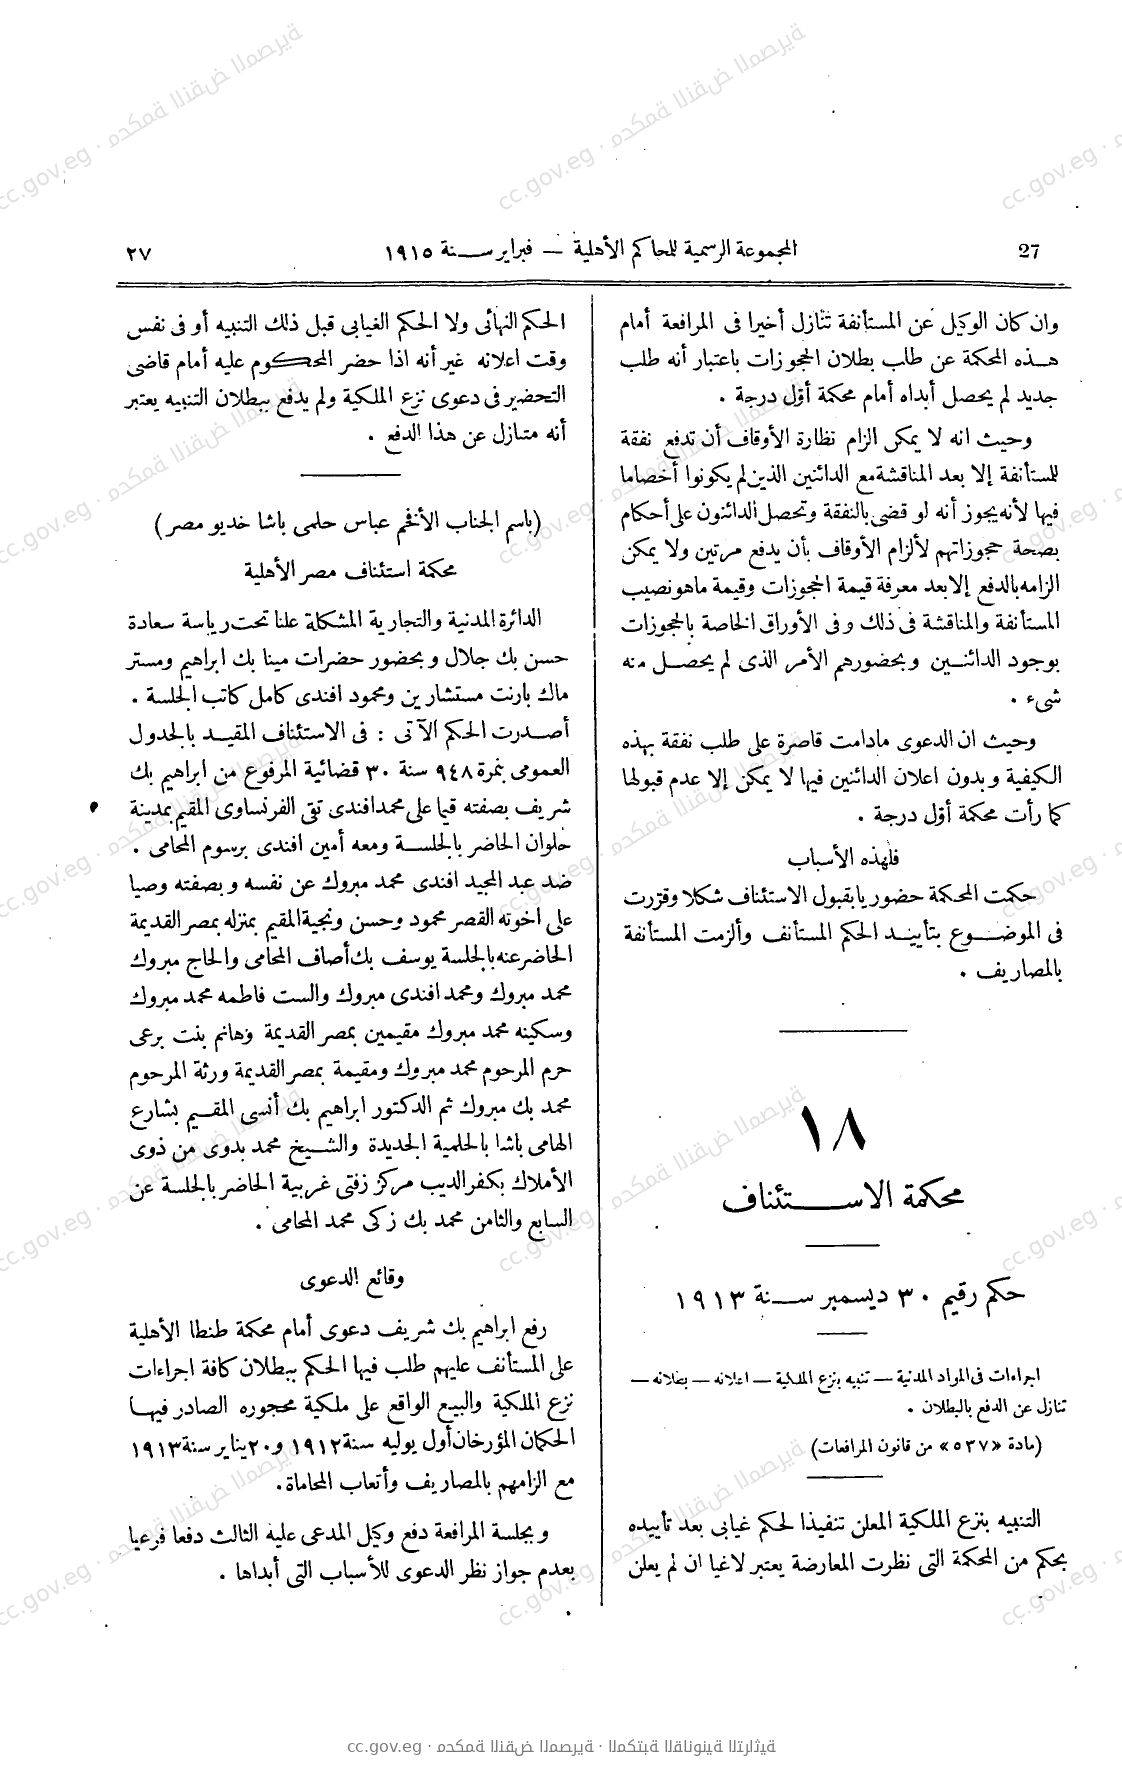 27
المجموعة الرسمية للمحاكم الأهلية — فبراير سنة ١٩١٥
٢٧
وان كان الوكيل عن المستأنفة تنازل أخيرا فى المرافعة أمام
هذه المحكمة عن طلب بطلان الحجوزات باعتبار أنه طلب
جديد لم يحصل أبداه أمام محكمة أوّل درجة .
وحيث انه لا يمكن الزام نظارة الأوقاف أن تدفع نفقة
للمستأنفة إلا بعد المناقشة مع الدائنين الذين لم يكونوا أخصاما
فيها لأنه يجوز أنه لو قضى بالنفقة وتحصل الدائنون على أحكام
بصحة حجوزاتهم لألزام الأوقاف بأن يدفع مرتين ولا يمكن
الزامه بالدفع إلا بعد معرفة قيمة الحجوزات وقيمة ماهو نصيب
المستأنفة والمناقشة فى ذلك وفى الأوراق الخاصة بالحجوزات
بوجود الدائنين وبحضورهم الأمر الذى لم يحصل منه
شىء .
وحيث ان الدعوى مادامت قاصرة على طلب نفقة بهذه
الكيفية وبدون اعلان الدائنين فيها لا يمكن إلا عدم قبولها
كما رأت محكمة أوّل درجة .
فلهذه الأسباب
حكمت المحكمة حضوريا بقبول الاستئناف شكلا وقرّرت
فى الموضوع بتأييد الحكم المستأنف وألزمت المستأنفة
بالمصاريف .
١٨
محكمة الاستئناف
حكم رقيم ٣٠ ديسمبر سنة ١٩١٣
اجراءات فى المواد المدنية — تنبيه بنزع الملكية — اعلانه — بطلانه —
تنازل عن الدفع بالبطلان .
(مادة «٥٣٧» من قانون المرافعات)
التنبيه بنزع الملكية المعلن تنفيذا لحكم غيابى بعد تأييده
بحكم من المحكمة التى نظرت المعارضة يعتبر لاغيا ان لم يعلن
الحكم النهائى ولا الحكم الغيابى قبل ذلك التنبيه أو فى نفس
وقت اعلانه غير أنه اذا حضر المحكوم عليه أمام قاضى
التحضير فى دعوى نزع الملكية ولم يدفع ببطلان التنبيه يعتبر
أنه متنازل عن هذا الدفع .
(باسم الجناب الأفخم عباس حلمى باشا خديو مصر)
محكمة استئناف مصر الأهلية
الدائرة المدنية والتجارية المشكلة علنا تحت رياسة سعادة
حسن بك جلال وبحضور حضرات مينا بك ابراهيم ومستر
ماك بارنت مستشارين ومحمود افندى كامل كاتب الجلسة .
أصدرت الحكم الآتى : فى الاستئناف المقيد بالجدول
العمومى بنمرة ٩٤٨ سنة ٣٠ قضائية المرفوع من ابراهيم بك
شريف بصفته قيما على محمد افندى تقى الفرنساوى المقيم بمدينة
حلوان الحاضر بالجلسة ومعه أمين افندى برسوم المحامى .
ضد عبد المجيد افندى محمد مبروك عن نفسه وبصفته وصيا
على اخوته القصر محمود وحسن ونجية المقيم بمنزله بمصر القديمة
الحاضر عنه بالجلسة يوسف بك أصاف المحامى والحاج مبروك
محمد مبروك ومحمد افندى مبروك والست فاطمه محمد مبروك
وسكينه محمد مبروك مقيمين بمصر القديمة وهانم بنت برعى
حرم المرحوم محمد مبروك ومقيمة بمصر القديمة ورثة المرحوم
محمد بك مبروك ثم الدكتور ابراهيم بك أنسى المقيم بشارع
الهامى باشا بالحلمية الجديدة والشيخ محمد بدوى من ذوى
الأملاك بكفر الديب مركز زفتى غربية الحاضر بالجلسة عن
السابع والثامن محمد بك زكى محمد المحامى .
وقائع الدعوى
رفع ابراهيم بك شريف دعوى أمام محكمة طنطا الأهلية
على المستأنف عليهم طلب فيها الحكم ببطلان كافة اجراءات
نزع الملكية والبيع الواقع على ملكية محجوره الصادر فيها
الحكمان المؤرخان أول يوليه سنة ١٩١٢ و٢٠ يناير سنة ١٩١٣
مع الزامهم بالمصاريف وأتعاب المحاماة .
وبجلسة المرافعة دفع وكيل المدعى عليه الثالث دفعا فرعيا
بعدم جواز نظر الدعوى للأسباب التى أبداها .
cc.gov.eg · محكمة النقض المصرية · المكتبة القانونية التراثية